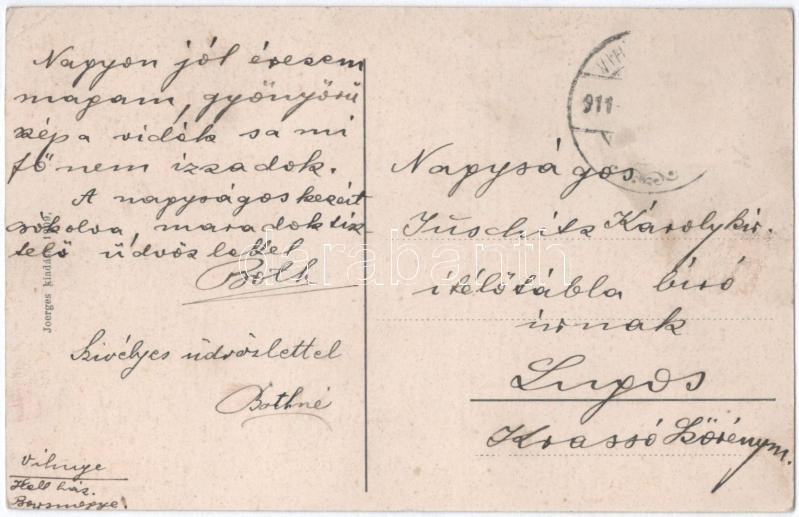 Nagyon jól érezem
magam, gyönyörű
szép a vidék sa mi
fő nem izzadok.
A nagyságos kezeit
csókolva, maradok tisz
telő üdvözlettel
Both
Szivélyes üdvözlettel
Bothné
Vihnye
Hell ház.
Barsmegye.
Joerges kiadása 1909.
911
Nagyságos
Juschitz Károly kir.
itélőtábla biró
úrnak
Lugos
Krassó Szörénym.
darabanth